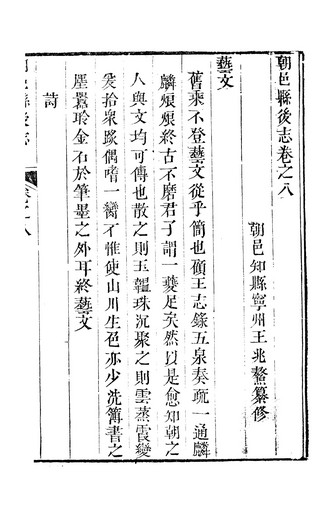 朝邑縣後志卷之八
朝邑知縣寧州王兆鰲纂修
藝文
舊乘不登藝文從乎簡也顧王志錄五泉奏疏一通麟
麟炳炳終古不磨君子謂一夔足矣然以是愈知朝之
人與文均可傳也散之則玉韞珠沉聚之則雲蒸霞變
爰拾衆殘偶嗜一臠不惟使山川生色亦少洗簿書之
塵囂聆金石於筆墨之外耳終藝文
詩